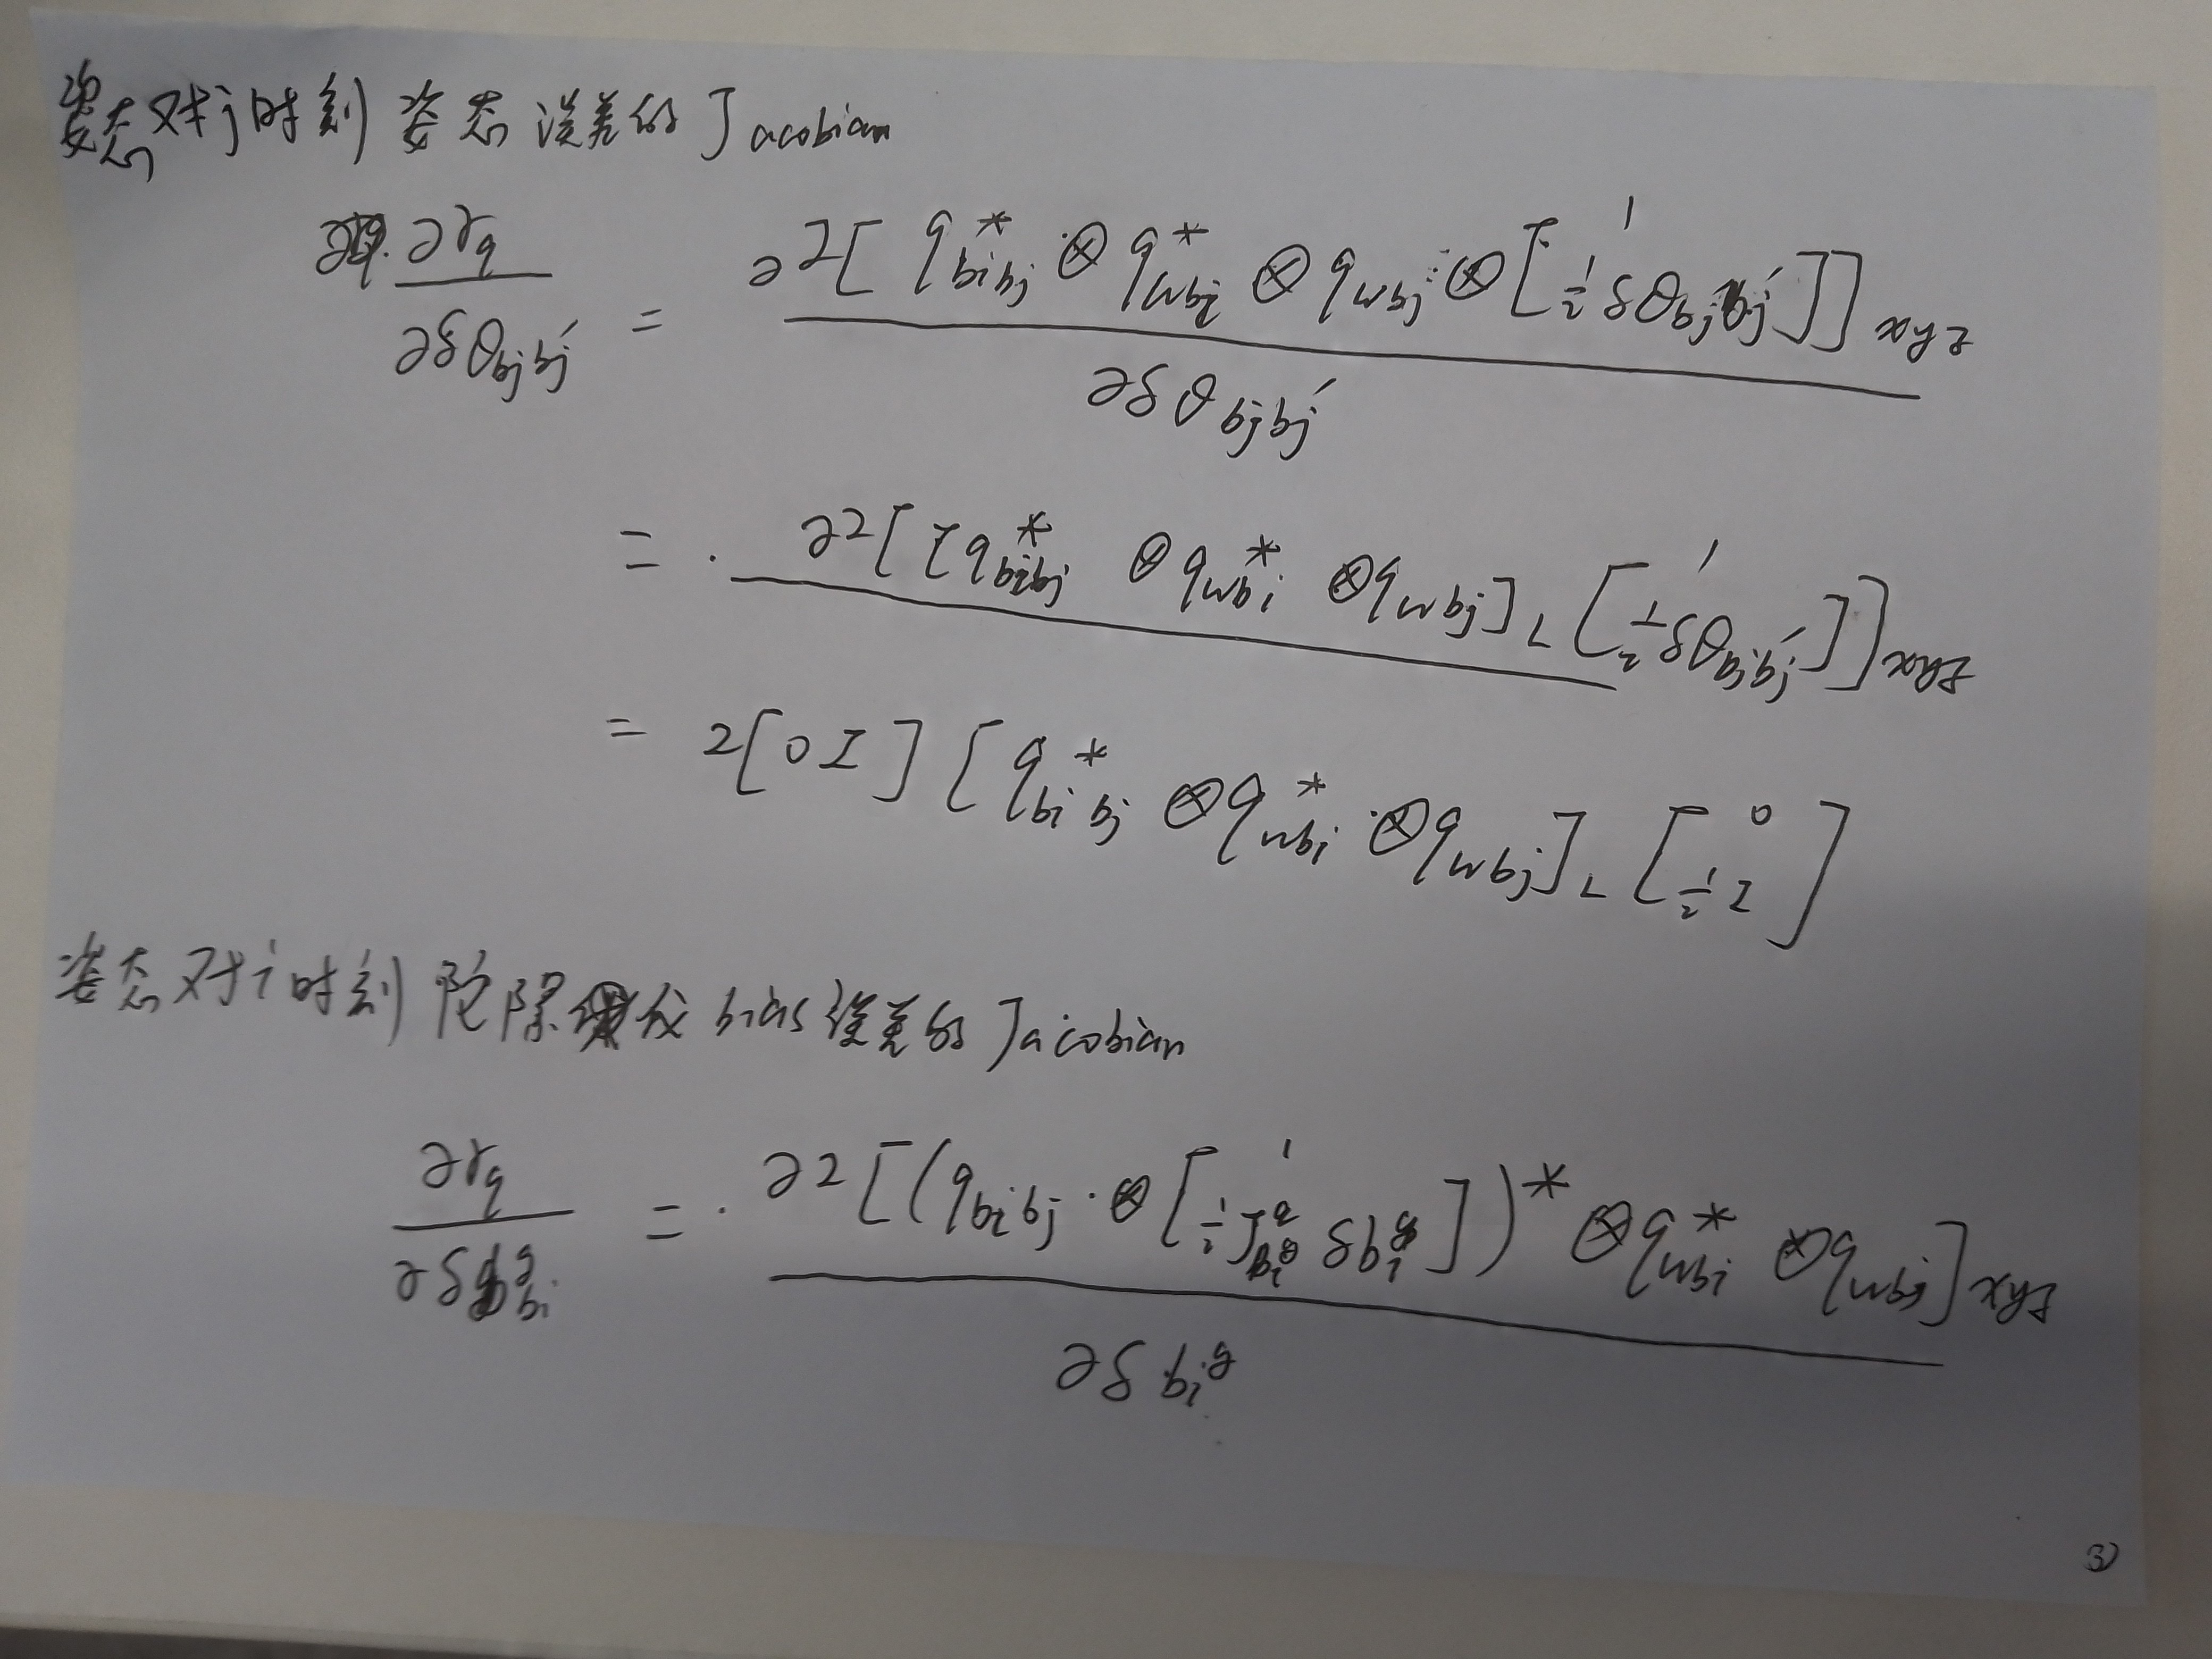 姿态对j时刻姿态误差的Jacobian
∂r_q / ∂δθ_{b_j b_j'} = ∂2[q*_{b_i b_j} ⊗ q*_{wb_i} ⊗ q_{wb_j} ⊗ [1; ½ δθ_{b_j b_j'}]]_{xyz} / ∂δθ_{b_j b_j'}
= ∂2[[q*_{b_i b_j} ⊗ q*_{wb_i} ⊗ q_{wb_j}]_L [1; ½ δθ_{b_j b_j'}]]_{xyz}
= 2[0 I][q*_{b_i b_j} ⊗ q*_{wb_i} ⊗ q_{wb_j}]_L [0; ½ I]
姿态对i时刻陀螺仪bias误差的Jacobian
∂r_q / ∂δb_i^g = ∂2[(q_{b_i b_j} ⊗ [1; ½ J^q_{b_i^g} δb_i^g])* ⊗ q*_{wb_i} ⊗ q_{wb_j}]_{xyz} / ∂δb_i^g
③